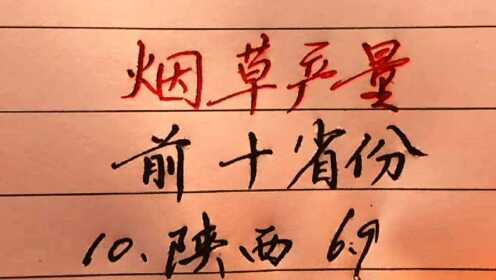 烟草产量
前十省份
10、陕西 6.9